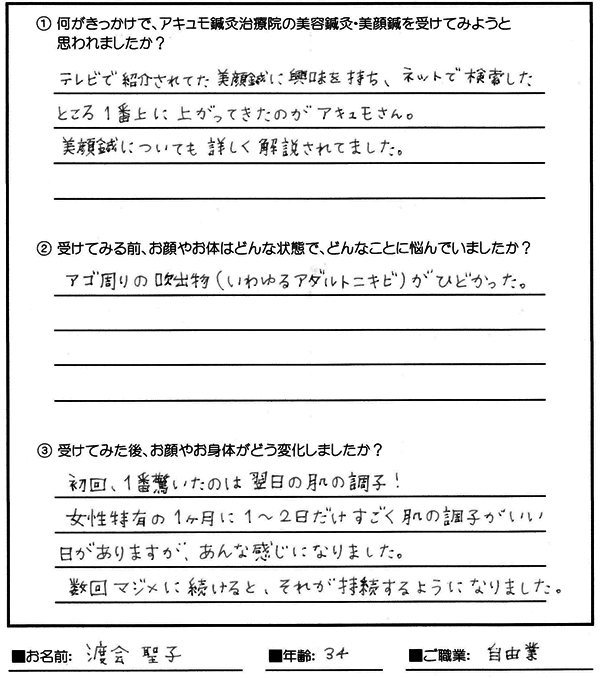 ① 何がきっかけで、アキュモ鍼灸治療院の美容鍼灸・美顔鍼を受けてみようと
思われましたか？
テレビで紹介されてた美顔鍼に興味を持ち、ネットで検索した
ところ1番上に上がってきたのがアキュモさん。
美顔鍼についても詳しく解説されてました。
② 受けてみる前、お顔やお体はどんな状態で、どんなことに悩んでいましたか？
アゴ周りの吹出物(いわゆるアダルトニキビ)がひどかった。
③ 受けてみた後、お顔やお身体がどう変化しましたか？
初回、1番驚いたのは翌日の肌の調子!
女性特有の1ヶ月に1〜2日だけすごく肌の調子がいい
日がありますが、あんな感じになりました。
数回マジメに続けると、それが持続するようになりました。
■お名前: 渡会 聖子 ■年齢: 34 ■ご職業: 自由業